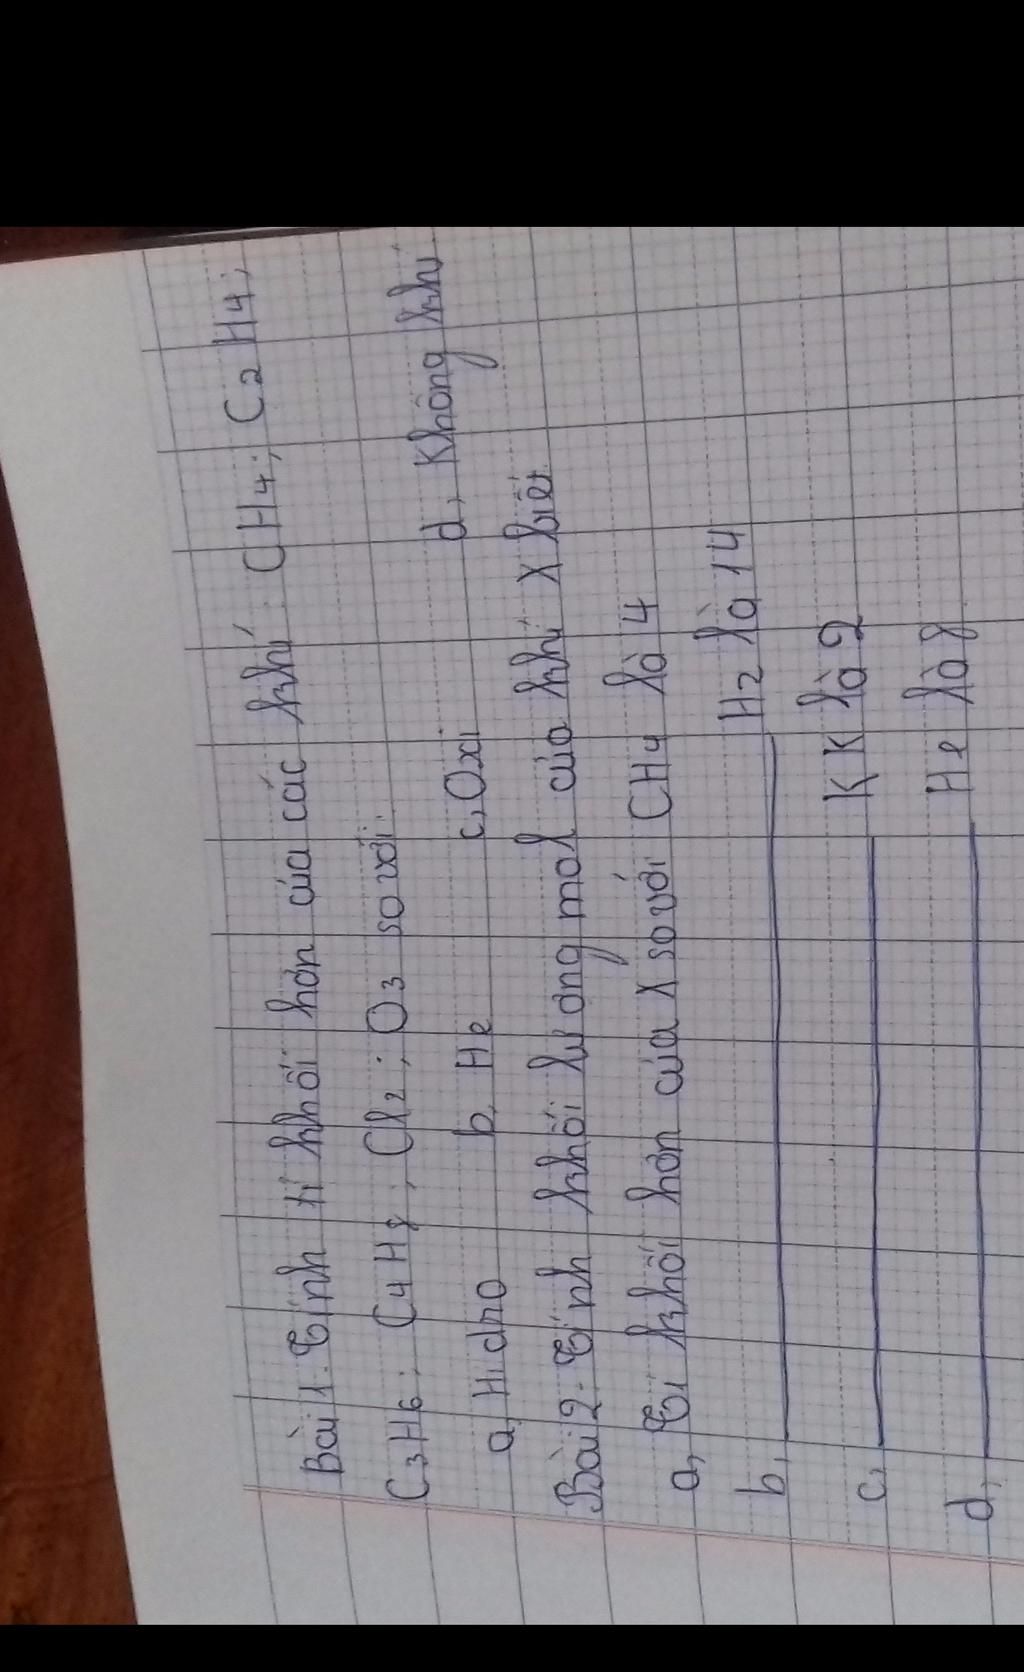 Bài 1. Tính tỉ khối hơn của các khí: CH4; C2H4;
C3H6; C4H8; Cl2; O3 so với:
a, Hidro b, He c, Oxi d, Không khí
Bài 2. Tính khối lượng mol của khí X biết
a, Tỉ khối hơn của X so với CH4 là 4
b, H2 là 14
c, KK là 2
d, He là 8